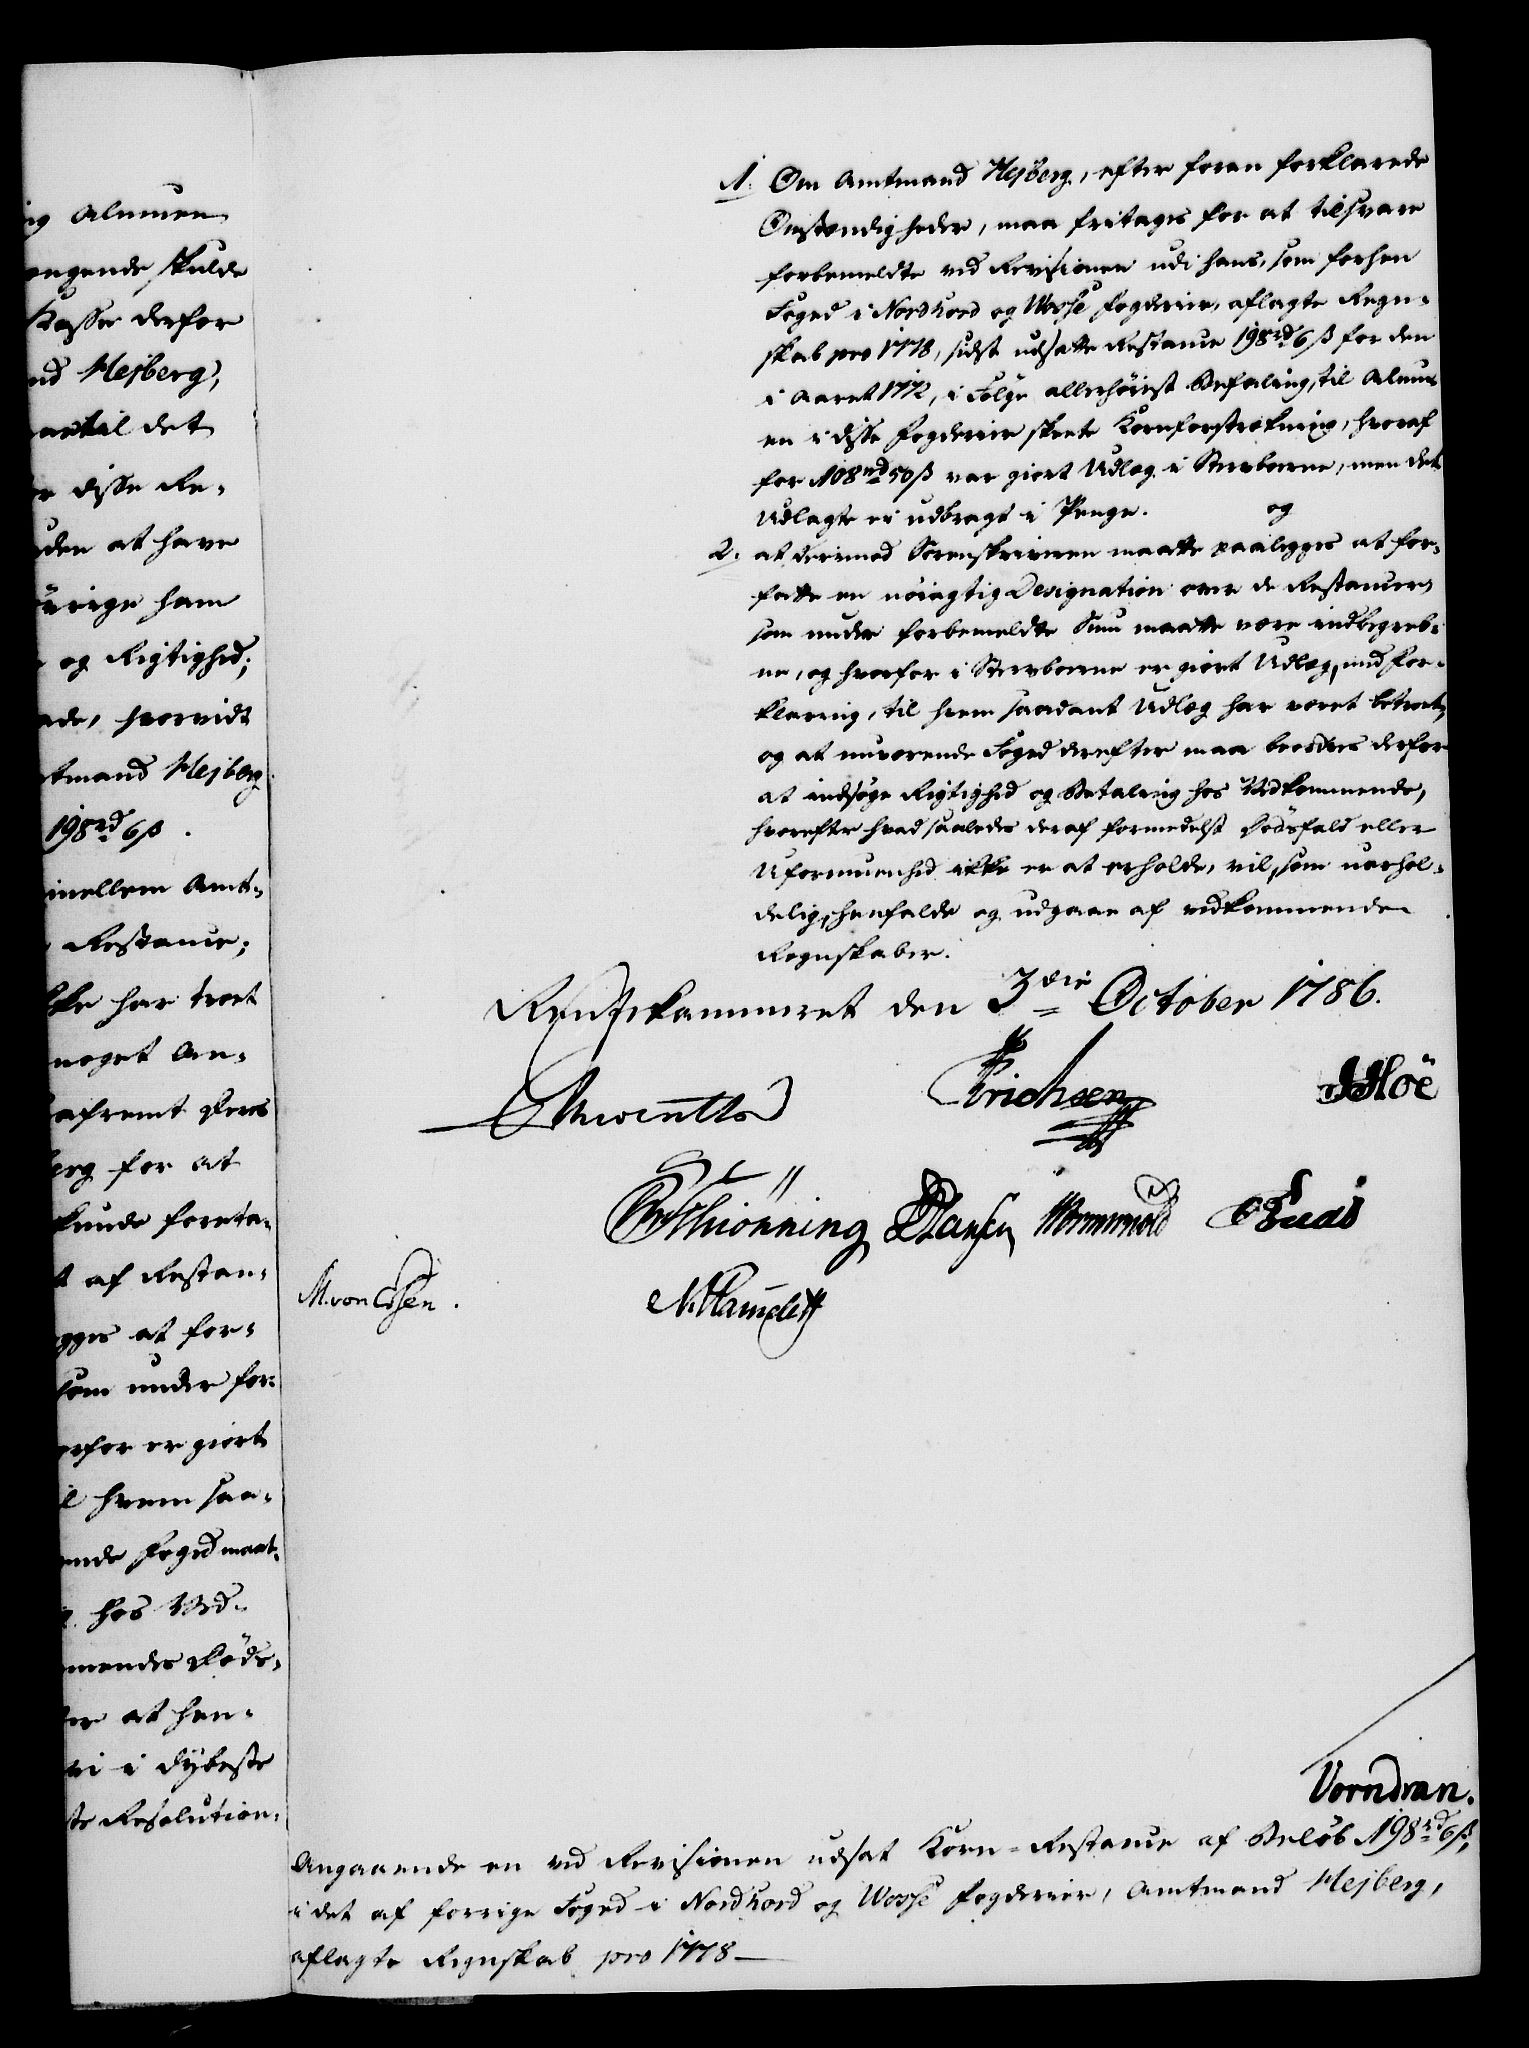 ig Almuen
ængende skulde
Kasse derfor
nd Hejberg,
aartil det
er disse Re-
uden at have
øvrige ham
og Rigtighed;
ade, hvorvidt
tmand Hejberg
198rd 6ß.
imellem Amt-
Restance;
ikke har troet
noget An-
afremt Deres
berg for at
kunde foreta-
t af Restan-
egges at for-
som under for-
vorfor er giort
il hvem saa-
ende Foged maat-
hos Ved-
mendes Døds-
er at hen-
vi i dybeste
ste Resolution.
1. Om Amtmand Hejberg, efter foran forklarede
Omstændigheder, maa fritages for at tilsvare
forbemeldte ved Revisionen udi hans, som forhen
Foged i Nordhord og Wosse Fogderier, aflagte Regn-
skab pro 1778, sidst udsatte Restance 198rd 6ß for den
i Aaret 1772, i Følge allerhøiest Befaling, til Almu-
en i disse Fogderier skeete Kornforstrækning, hvoraf
for 108rd 50ß var giort Udlæg i Sterboerne, men det
Udlagte ei udbragt i Penge. og
2. at derimod Sorenskriveren maatte paalegges at for-
fatte en nøiagtig Designation over de Restancer,
som under forbemeldte Sum maatte være indbegreb-
ne, og hvorfor i Sterboerne er giort Udlæg, med For-
klaring, til hvem saadant Udlæg har været betroet,
og at nuværende Foged derefter maa beordres derfor
at indsøge Rigtighed og Betaling hos Vedkommende,
hvorefter hvad saaledes deraf formedelst Dødsfald eller
Uformuenhed ikke er at erholde, vil, som uerhol-
delig, henfalde og udgaae af vedkommende
Regnskaber.
Rentekammeret den 3die October 1786.
Reventlow Erichsen JHoë
Schiønning Hansen Wormskiold
M. von Essen.
Vorndran.
Angaaende en ved Revisionen udsat Korn-Restance af Beløb 198rd 6ß,
i det af forrige Foged i Nordhord og Wosse Fogderier, Amtmand Hejberg,
aflagte Regnskab pro 1778